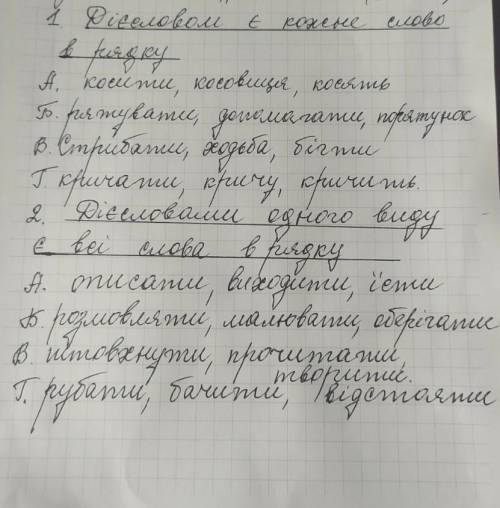 1. Дієсловом є кожне слово
в рядку
А. косити, косовиця, косять
Б. рятувати, допомагати, порятунок
В. Стрибати, ходьба, бігти
Г. кричати, кричу, кричить.
2. Дієсловами одного виду
є всі слова в рядку
А. описати, виходити, їсти
Б. розмовляти, малювати, оберігати
В. штовхнути, прочитати,
творити.
Г. рубати, бачити, відстояти